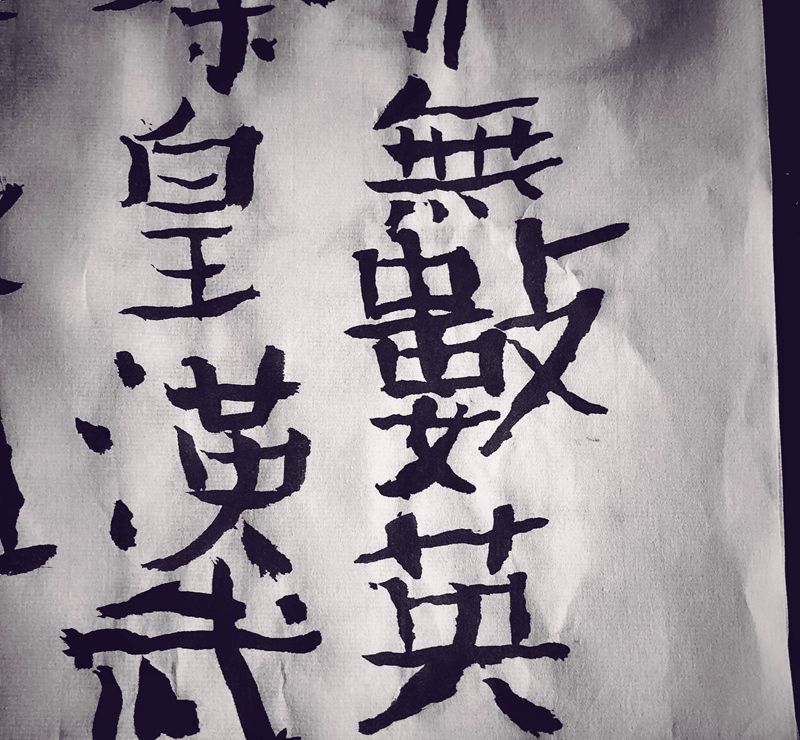 無數英
皇漢武